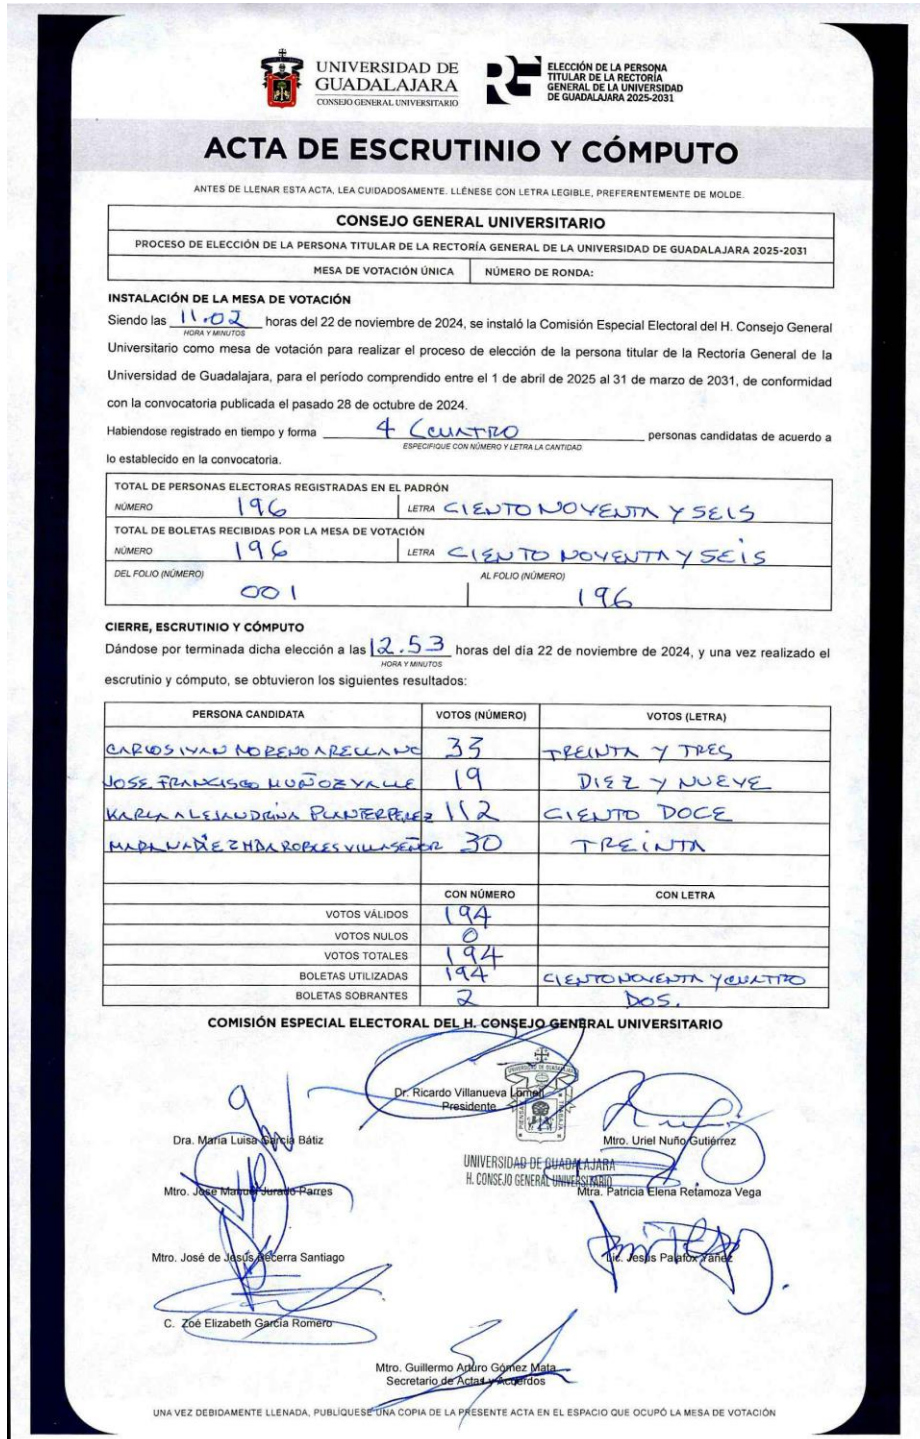 UNIVERSIDAD DE
GUADALAJARA
CONSEJO GENERAL UNIVERSITARIO
ELECCIÓN DE LA PERSONA
TITULAR DE LA RECTORÍA
GENERAL DE LA UNIVERSIDAD
DE GUADALAJARA 2025-2031
ACTA DE ESCRUTINIO Y CÓMPUTO
ANTES DE LLENAR ESTA ACTA, LEA CUIDADOSAMENTE. LLÉNESE CON LETRA LEGIBLE, PREFERENTEMENTE DE MOLDE.
CONSEJO GENERAL UNIVERSITARIO
PROCESO DE ELECCIÓN DE LA PERSONA TITULAR DE LA RECTORÍA GENERAL DE LA UNIVERSIDAD DE GUADALAJARA 2025-2031
MESA DE VOTACIÓN ÚNICA NÚMERO DE RONDA:
INSTALACIÓN DE LA MESA DE VOTACIÓN
Siendo las 11.02 horas del 22 de noviembre de 2024, se instaló la Comisión Especial Electoral del H. Consejo General
HORA Y MINUTOS
Universitario como mesa de votación para realizar el proceso de elección de la persona titular de la Rectoría General de la
Universidad de Guadalajara, para el período comprendido entre el 1 de abril de 2025 al 31 de marzo de 2031, de conformidad
con la convocatoria publicada el pasado 28 de octubre de 2024.
Habiendose registrado en tiempo y forma 4 (CUATRO personas candidatas de acuerdo a
ESPECIFIQUE CON NÚMERO Y LETRA LA CANTIDAD
lo establecido en la convocatoria.
TOTAL DE PERSONAS ELECTORAS REGISTRADAS EN EL PADRÓN
NÚMERO 196 LETRA CIENTO NOVENTA Y SEIS
TOTAL DE BOLETAS RECIBIDAS POR LA MESA DE VOTACIÓN
NÚMERO 196 LETRA CIENTO NOVENTA Y SEIS
DEL FOLIO (NÚMERO) AL FOLIO (NÚMERO)
001 196
CIERRE, ESCRUTINIO Y CÓMPUTO
Dándose por terminada dicha elección a las 12.53 horas del día 22 de noviembre de 2024, y una vez realizado el
HORA Y MINUTOS
escrutinio y cómputo, se obtuvieron los siguientes resultados:
PERSONA CANDIDATA VOTOS (NÚMERO) VOTOS (LETRA)
CARLOS IVAN MORENO ARELLANO 33 TREINTA Y TRES
JOSE FRANCISCO MUÑOZ VALLE 19 DIEZ Y NUEVE
KARLA ALEJANDRINA PLANTER PEREZ 112 CIENTO DOCE
MARA NADIEZHDA ROBLES VILLASEÑOR 30 TREINTA
CON NÚMERO CON LETRA
VOTOS VÁLIDOS 194
VOTOS NULOS 0
VOTOS TOTALES 194
BOLETAS UTILIZADAS 194 CIENTO NOVENTA Y CUATRO
BOLETAS SOBRANTES 2 DOS.
COMISIÓN ESPECIAL ELECTORAL DEL H. CONSEJO GENERAL UNIVERSITARIO
Dr. Ricardo Villanueva Lomelí
Presidente
Dra. María Luisa García Bátiz
Mtro. Uriel Nuño Gutiérrez
UNIVERSIDAD DE GUADALAJARA
H. CONSEJO GENERAL UNIVERSITARIO
Mtro. José Manuel Jurado Parres
Mtra. Patricia Elena Retamoza Vega
Mtro. José de Jesús Becerra Santiago
Lic. Jesús Palafox Yáñez
C. Zoé Elizabeth García Romero
Mtro. Guillermo Arturo Gómez Mata
Secretario de Actas y Acuerdos
UNA VEZ DEBIDAMENTE LLENADA, PUBLÍQUESE UNA COPIA DE LA PRESENTE ACTA EN EL ESPACIO QUE OCUPÓ LA MESA DE VOTACIÓN